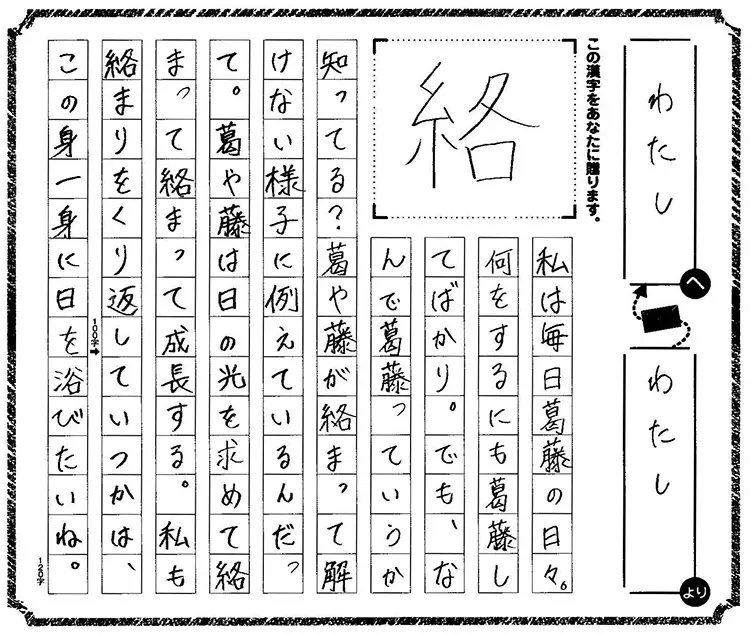 わたし
へ
わたし
より
この漢字をあなたに贈ります。
絡
私は毎日葛藤の日々。
何をするにも葛藤し
てばかり。でも、な
んで葛藤っていうか
知ってる?葛や藤が絡まって解
けない様子に例えているんだっ
て。葛や藤は日の光を求めて絡
まって絡まって成長する。私も
絡まりをくり返していつかは、
100字
この身一身に日を浴びたいね。
120字